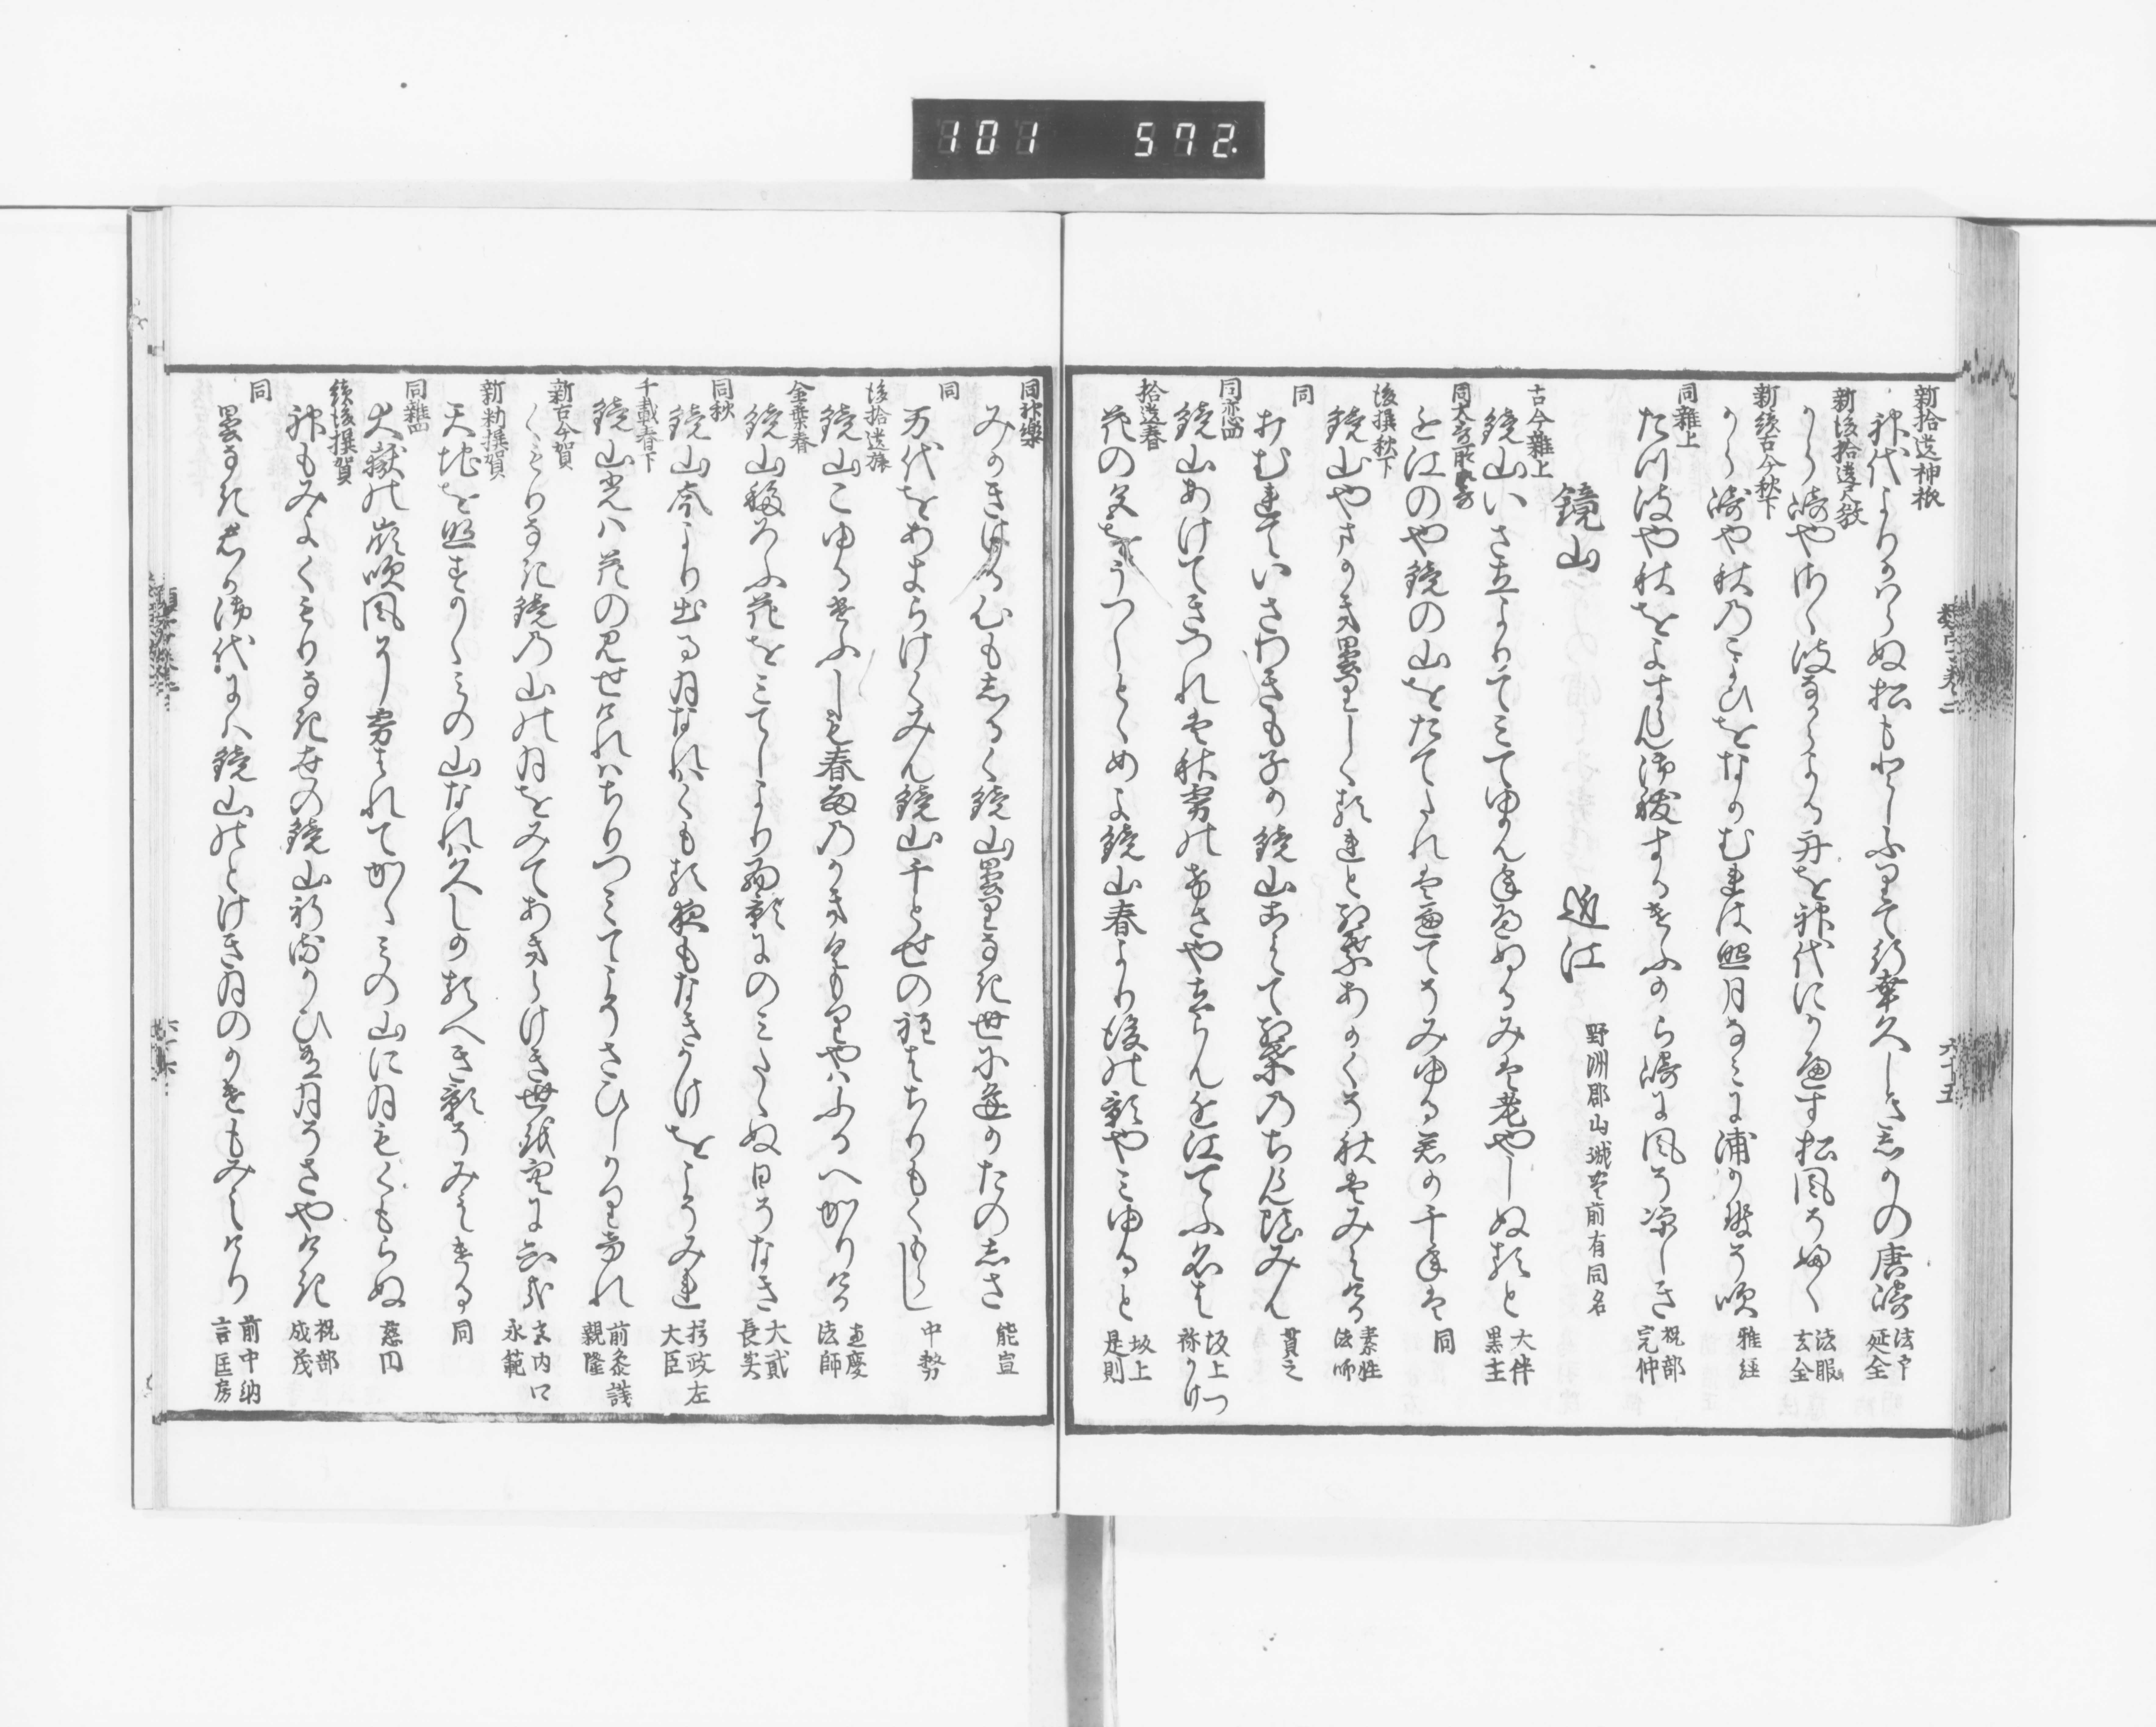 101 572.
新拾遺神祇
神代よりかはらぬ松も年ふりてみゆき久しき志かの唐崎 法印延全
新後拾遺尺教
から崎やさゝ波なからよる舟を神代にかへす松風そ吹く
新続古今秋下
から崎や秋のこよひをなかむれは照月なみに浦かせそ吹 雅経
同雑上
たつ波や秋をよすらん御祓するけふのから崎に風そ涼しき 祝部
鏡山 近江 野洲郡山城筑前有同名
古今雑上
鏡山いさ立よりてみてゆかん年へぬるみは老やしぬると 大伴黒主
近江のや鏡の山をたてたれはかねてそみゆる君か千年は 同
後撰秋下
鏡山やまかきくもりしくるれと紅葉あかくそ秋はみえける 素性法師
同
おむれていさわきも子か鏡山こえて紅葉のちらん影みん 貫之
同恋四
鏡山あけてきつれは秋霧のけさや立らん近江てふ名は 坂上つねかけ
拾遺春
花の色をうつしとゝめよ鏡山春より後の影やみゆると 坂上是則
同神楽
みかきける心もしるく鏡山曇りなき世にあふかたのしさ 能宣
同
万代をあきらけくみん鏡山千とせの程はちりもくもらし 中務
後拾遺旅
鏡山こゆるけふしも春雨のかきくもりやはふるへかりける 恵慶法師
金葉春
鏡山移ろふ花をみてしより面影にのみたゝぬ日そなき 大貳長実
同秋
鏡山峯より出る月なれはくもる夜もなきかけをこそみれ 摂政左大臣
千載春下
鏡山光は花の見せけれはちりつみてこそさひしかりけれ 前参議親隆
新古今賀
くもりなき鏡の山の月をみてあきらけき世を空にしる哉 宮内口永範
新勅撰賀
天地を照すかゝみの山なれは久しかるへき影そみえける 同
同雑四
大嶽の峯吹風に霧はれてかゝみの山に月そくもらぬ 慈円
続後撰賀
神もみよくもりなき世の鏡山祈るかひある月そさやけき 祝部成茂
同
曇りなき君か御代にハ鏡山のとけき月のかけもみえけり 前中納言匡房
六十五